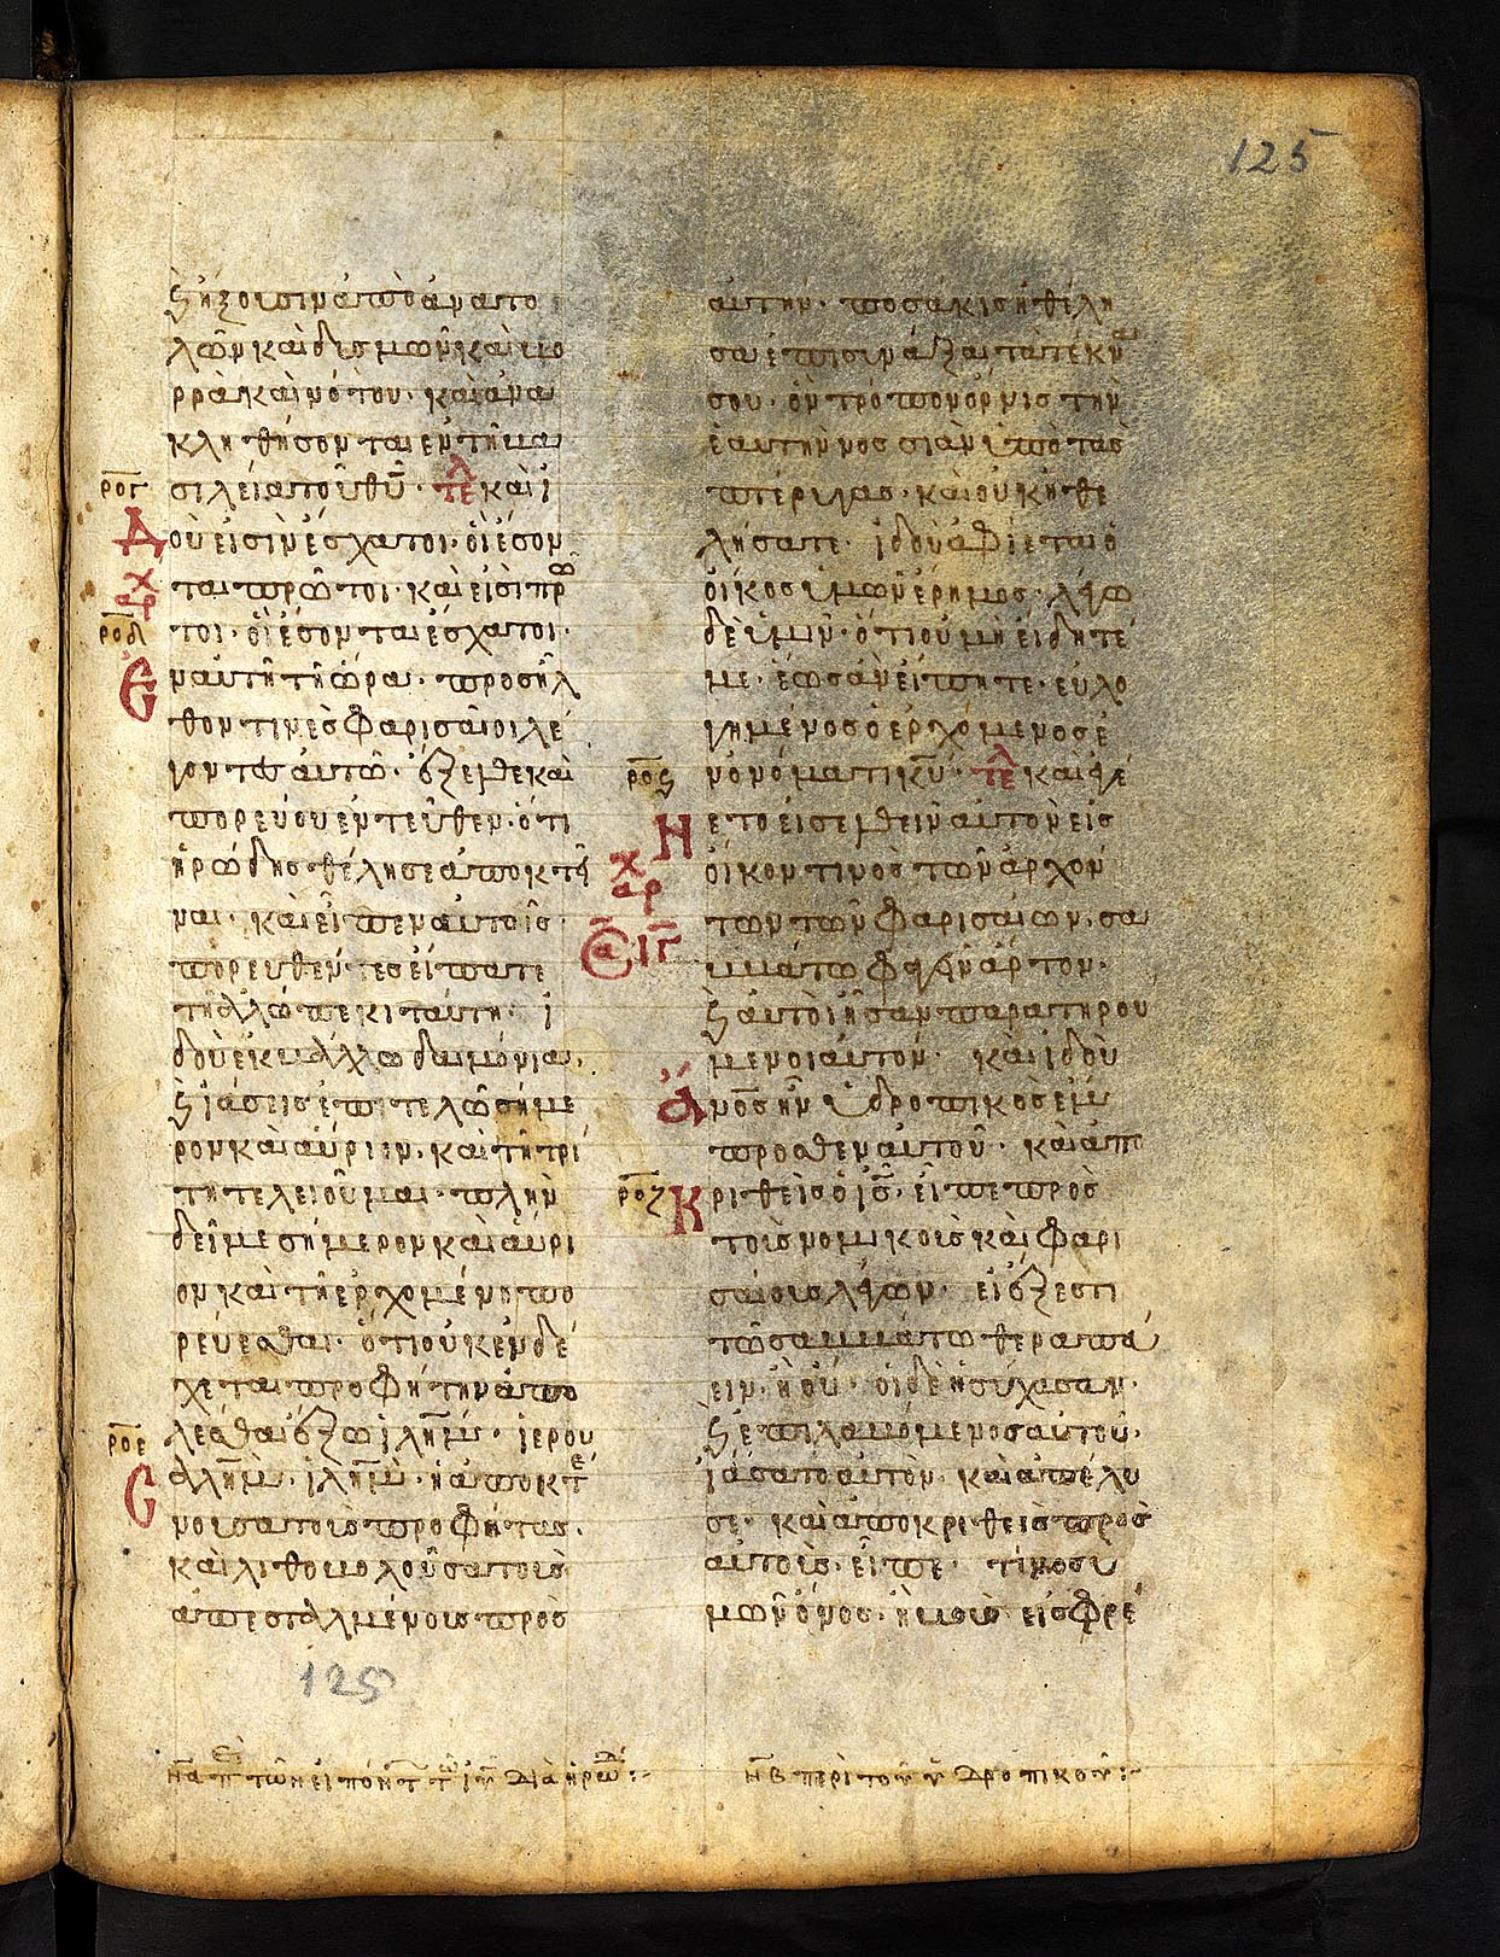 125
ϛ ἥξουσιν ἀπὸ ἀνατο
λῶν καὶ δυσμῶν καὶ βο
ρρᾶ καὶ νότου· καὶ ἀνα
κληθήσονται ἐν τῇ βα
ρογ σιλείᾳ τοῦ θυ̅· τελ καὶ ἰ
δοὺ εἰσὶν ἔσχατοι· οἳ ἔσον
χ αρ ται πρῶτοι· καὶ εἰσὶ πρῶ
ροδ τοι· οἳ ἔσονται ἔσχατοι·
Ἐν αὐτῇ τῇ ὥρᾳ· προσῆλ
θόν τινες φαρισαῖοι λέ
γοντες αὐτῷ· ἔξελθε καὶ
πορεύου ἐντεῦθεν· ὅτι
ἡρώδης θέλει σε ἀποκτεῖ
ναι· καὶ εἶπεν αὐτοῖς·
πορευθέντες εἴπατε
τῇ ἀλώπεκι ταύτῃ· ἰ
δοὺ ἐκβάλλω δαιμόνια,
ϛ ἰάσεις ἐπιτελῶ σήμε
ρον καὶ αὔριον, καὶ τῇ τρί
τῃ τελειοῦμαι· πλὴν
δεῖ με σήμερον καὶ αὔρι
ον καὶ τῇ ἐρχομένῃ πο
ρεύεσθαι· ὅτι οὐκ ἐνδέ
χεται προφήτην ἀπο
ροε λέσθαι ἔξω ἰλη̅μ· ἱερου
σαλη̅μ· ἰλη̅μ· ἡ ἀποκτέ
νουσα τοὺς προφήτας·
καὶ λιθοβολοῦσα τοὺς
ἀπεσταλμένους πρὸς
αὐτήν· ποσάκις ἠθέλη
σα ἐπισυνάξαι τὰ τέκνα
σου· ὃν τρόπον ὄρνις τὴν
ἑαυτῆς νοσσιὰν ὑπὸ τὰς
πτέρυγας· καὶ οὐκ ἠθε
λήσατε· ἰδοὺ ἀφίεται ὁ
οἶκος ὑμῶν ἔρημος· λέγω
δὲ ὑμῖν· ὅτι οὐ μὴ εἴδητέ
με· ἕως ἂν εἴπητε· εὐλο
γημένος ὁ ἐρχόμενος ἐ
ροϛ ν ὀνόματι κυ̅· τελ καὶ ἐγέ
νετο εἰσελθεῖν αὐτὸν εἰς
χ αρ οἶκόν τινος τῶν ἀρχόν
των τῶν φαρισαίων, σα
ββάτῳ φαγεῖν ἄρτον·
ϛ αὐτοὶ ἦσαν παρατηρού
μενοι αὐτόν· καὶ ἰδοὺ
ἄνος̅ ἦν ὑδρωπικὸς ἔμ
προσθεν αὐτοῦ· καὶ ἀπο
ροζ κριθεὶς ὁ ις̅· εἶπε πρὸς
τοὺς νομικοὺς καὶ φαρι
σαίους λέγων· εἰ ἔξεστι
τῷ σαββάτῳ θεραπεύ
ειν· ἢ οὔ· οἱ δὲ ἡσύχασαν·
ϛ ἐπιλαβόμενος αὐτοῦ·
ἰάσατο αὐτὸν· καὶ ἀπέλυ
σε· καὶ ἀποκριθεὶς πρὸς
αὐτοὺς· εἶπε· τίνος ὑ
μῶν ὄνος· ἢ βοῦς εἰς φρέ
125
να π τῶν εἰπόντ τῶ ιυ̅ διὰ ἡρώδ :~
νβ περὶ τοῦ ὑδροπικοῦ :~